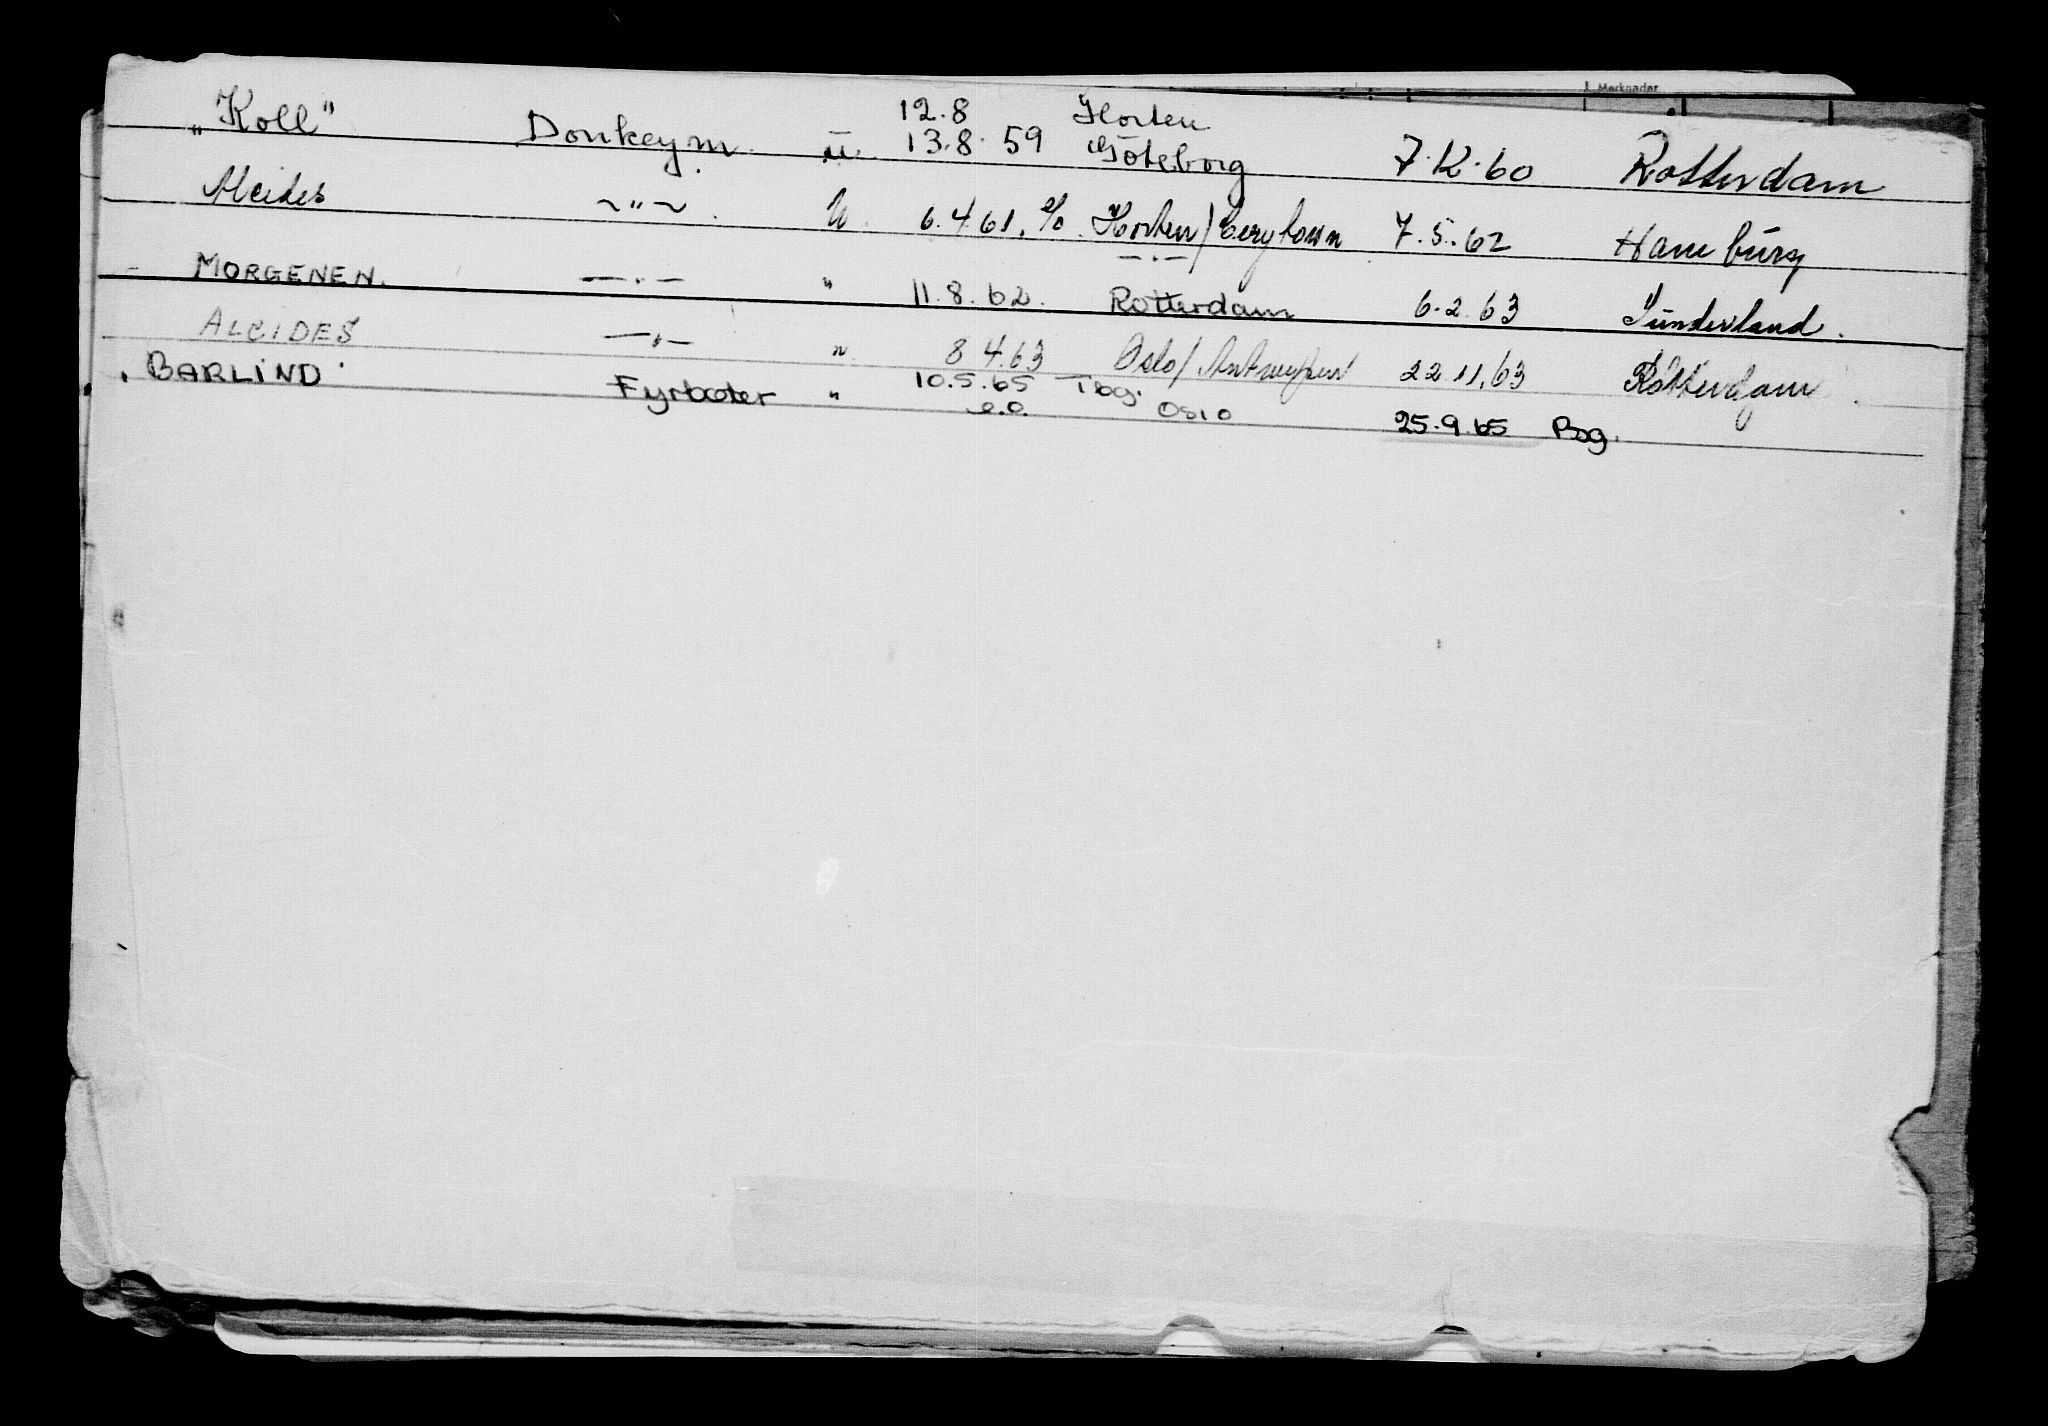 Merknader
"Koll" Donkeym. u. 12.8 13.8.59 Horten Göteborg 7.12.60 Rotterdam
Alcides ~"~. U. 6.4.61. e/o Horten/ 7.5.62 Hamburg
MORGENEN. —.— " 11.8.62. —.— Rotterdam 6.2.63 Sunderland.
ALCIDES —"— " 8 4.63 Oslo/Antwerpen 22 11.63 Rotterdam.
"BARLIND" Fyrbøter " 10.5.65 e.o. Tbg. Oslo 25.9.65 Bsg.